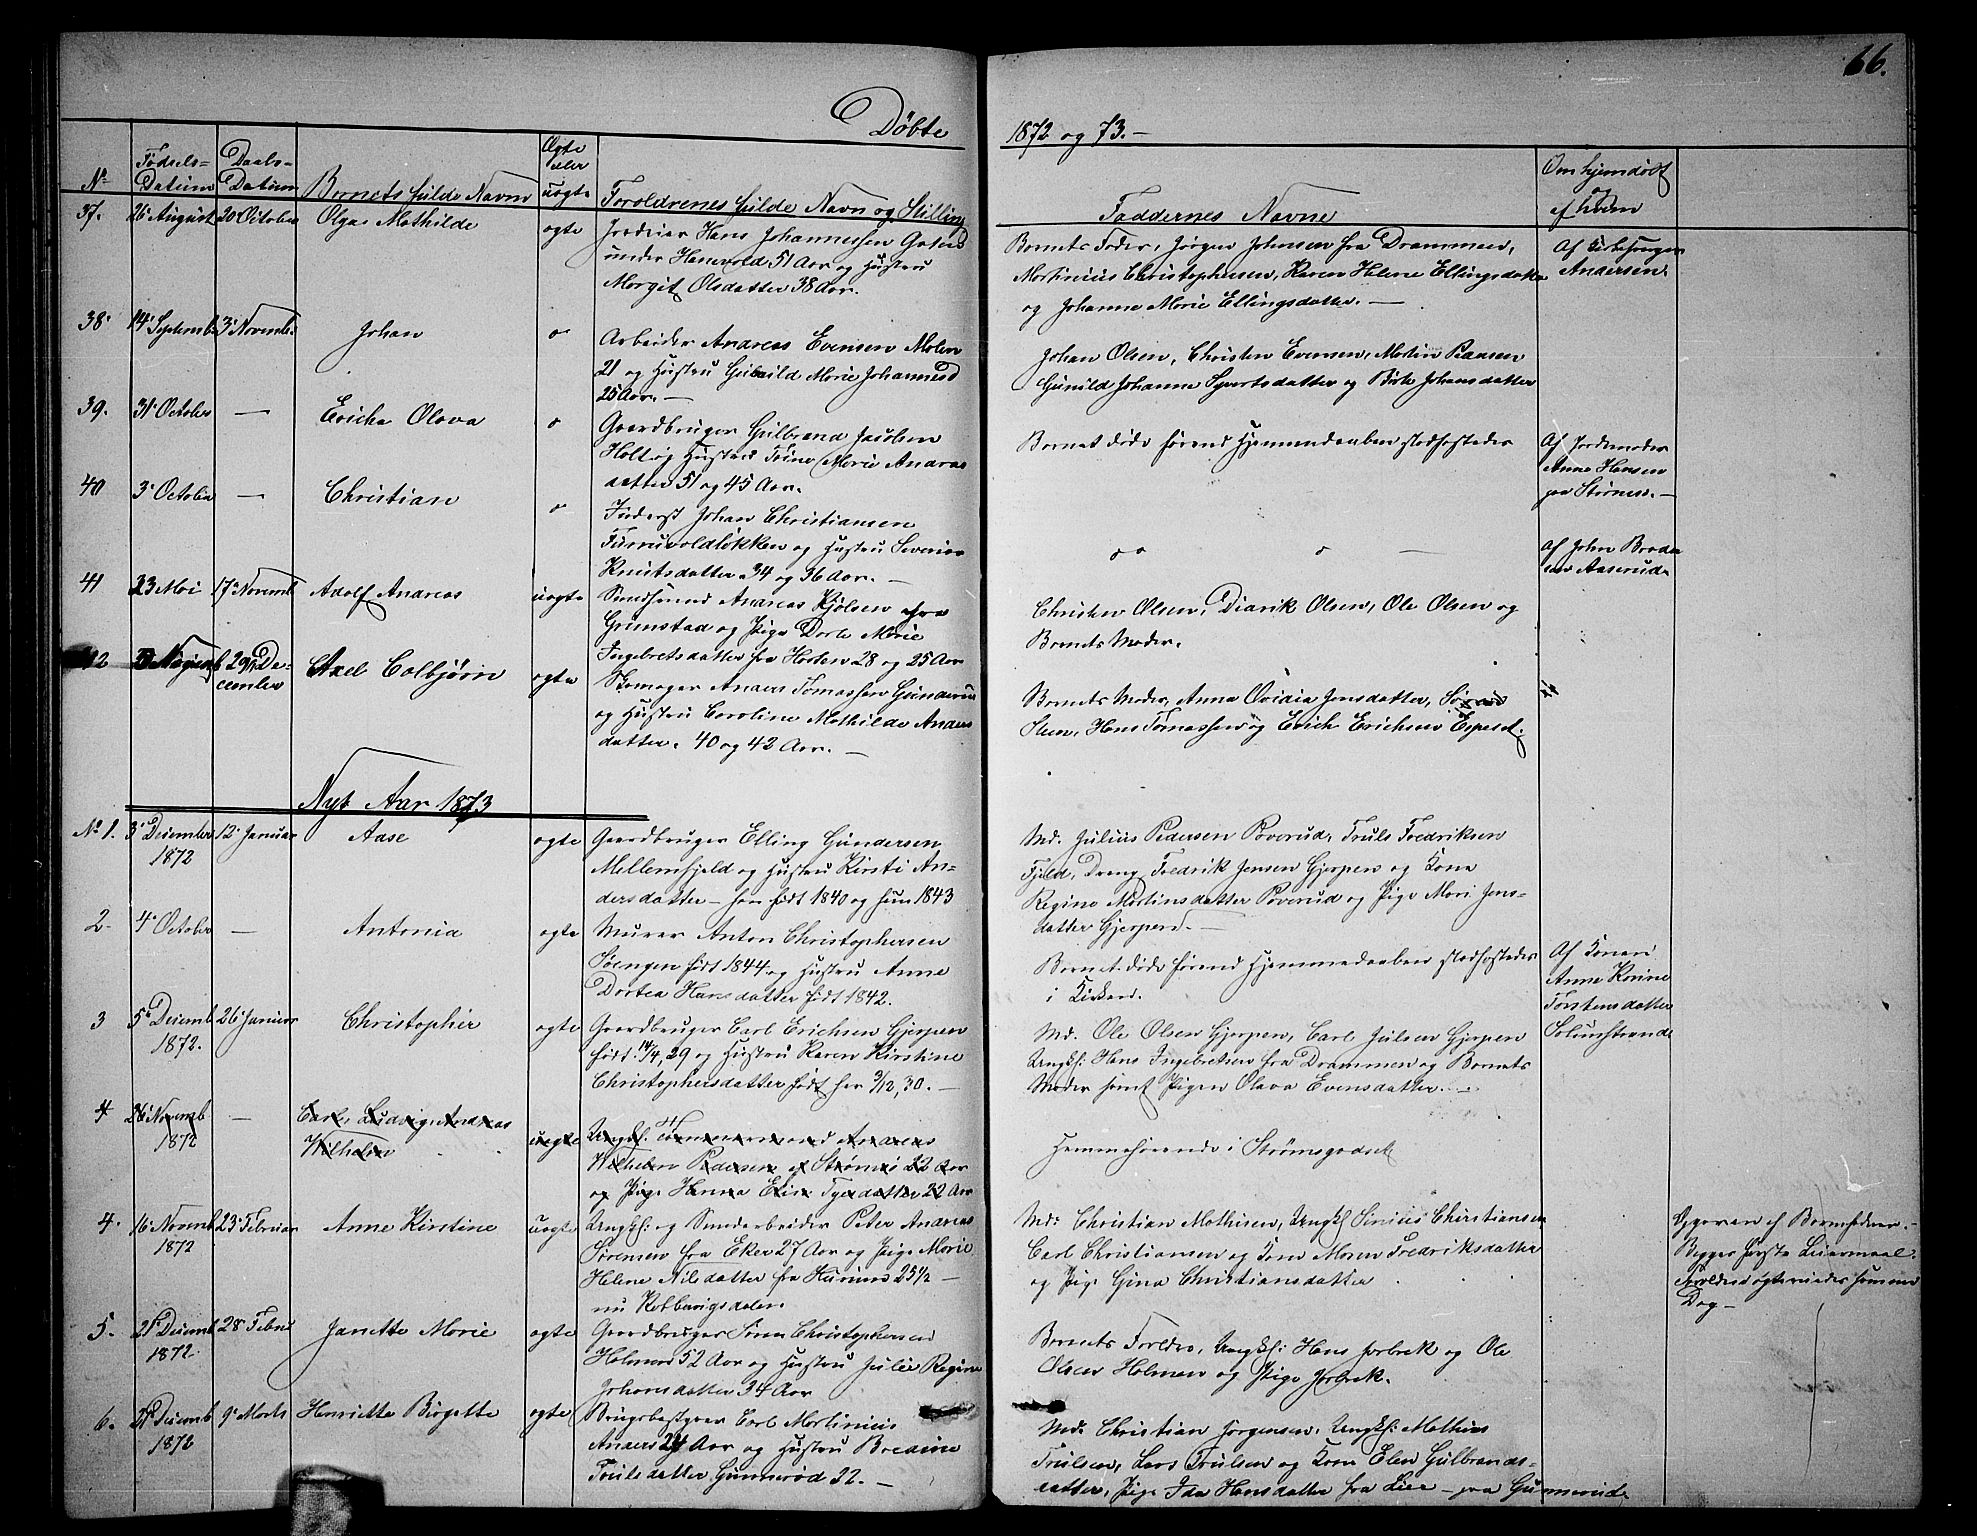 66.
Døbte
1872 og 73.-
No
Fødsels-
Datum
Daabs-
Datum
Barnets fulde Navn
Ægte
eller
uægte
Forældrenes fulde Navn og Stilling
Faddernes Navne
Om hjemdøbt
og
af hvem
37.
26 August
20 October
Olga Mathilde
ægte
Hans Johannessen
under Hanevold 51 Aar og Hustru
Margit Olsdatter 38 Aar.
Barnets Fader, Jørgen Johnsen fra Drammen,
Martinius Christophersen, Karen Helene Ellingsdatter
og Johanne Marie Ellingsdatter. -
Af Kirkesanger
Andersen
38.
14 Septembr
3 Novembr
Johan
Arbeider Andreas Evensen Molen
21 og Hustru Gunild Marie Johannesd
25 Aar. -
Johan Olsen, Christen Evensen, Martin
Gunild Johanne Syvertsdatter og Johansdatter
39.
31 October
-
Olava
Gaardbruger Gulbrand Jacobsen
Holt og Hustru Trine Marie Andreas
datter 51 og 45 Aar.
Barnet døde førend Hjemmedaaben stadfæstedes
Af Jordemoder
Anne Hansen
paa Strømsø. -
40
3 October
-
Christian
Inderst Johan Christiansen
Furuvoldløkken og Hustru Severine
Knutsdatter 34 og 36 Aar. -
Af John
Aaserud
41
23 Mai
17 Novemb
Adolf Andreas
uægte
Andreas Kjølsen fra
Grimstad og Pige Dorte Marie
Ingebretsdatter fra Horten 28 og 25 Aar
Christen Olsen, Didrik Olsen, Ole Olsen og
Barnets Moder.
42
29 De-
cember
Axel Colbjørn
ægte
Skomager Anders Tomassen Gunderud
og Hustru Caroline Mathilde Anders
datter. 40 og 42 Aar. -
Barnets Moder, Anna Ovidia Jensdatter,
Steen, Hans Tomassen og Erich Erichsen Espeset.
Nyt Aar 1873
No 1.
3 December
1872
12 Januar
Aase
ægte
Gaardbruger Elling Gundersen
Mellemfjeld og Hustru Kirsti An-
dersdatter - han født 1840 og hun 1843
Md. Julius Pedersen Poverud, Truls Fredriksen
Fjeld, Dreng Fredrik Jensen Gjerpen og Kone
Regine Martinsdatter Poverud og Pige Mari Jens-
datter Gjerpen. -
2.
4 October
-
Antonia
ægte
Murer Anton Christophersen
Søengen født 1844 og Hustru Anne
Dortea Hansdatter født 1842.
Barnet døde førend Hjemmedaaben stadfæstedes
i Kirken.
Af Konen
Anne Karine
Torstensdatter
Solumstrand
3
5 Decemb
1872.
26 Januar
Christopher
ægte
Gaardbruger Carl Erichsen Gjerpen
født 14/4 29 og Hustru Karen Kirstine
Christophersdatter født her 3/12, 30. -
Md. Ole Olsen Gjerpen, Carl Julsen Gjerpen
Ungkf. Hans Ingebretsen fra Drammen og Barnets
Moder samt Pigen Olava Evensdatter. -
4
26 Novemb
1872
-
Carl, Ludvig, Andreas
Wilhelm
uægte
Ungkf. Tømmermand Andreas
Wilhelm Pedersen af Strømsø 22 Aar
og Pige Hanna datter 22 Aar
Hjemmehørende i Strømsgodset
4.
16 Novemb
1872
23 Februar
Anne Kirstine
uægte
Ungkf: og Smedarbeider Peter Andreas
Sørensen fra Eker 27 Aar og Pige Marie
Helene Nilsdatter fra Hurum 25 1/2 -
nu Kobbervigsdalen.
Md: Christian Mathisen, Ungkf Sinius Christiansen
Carl Christiansen og Kone Maren Fredriksdatter
og Pige Gina Christiansdatter
Opgiven af Barnefaderen. -
Begges første Leiermaal.
Dag -
5.
21 Decemb
1872.
28 Febru
Janette Marie
ægte
Gaardbruger Søren Christophersen
Holmen 52 Aar og Hustru Julie Regine
Johansdatter 34 Aar
Barnets Forældre, Ungkf: Hans og Ole
Olsen Holmen og Pige
6.
21 Decemb
1872
9 Marts
Henriette Birgette
ægte
Brugsbestyrer Carl Martinius
Anders 24 Aar og Hustru Bredine
Trulsdatter Gunnerød 22. -
Md. Christian Jørgensen, Ungkf: Mathias
Trulsen, Lars Trulsen og Kone Elen Gulbrands-
datter, Pige Ida Hansdatter fra Lier - paa Gunnerud